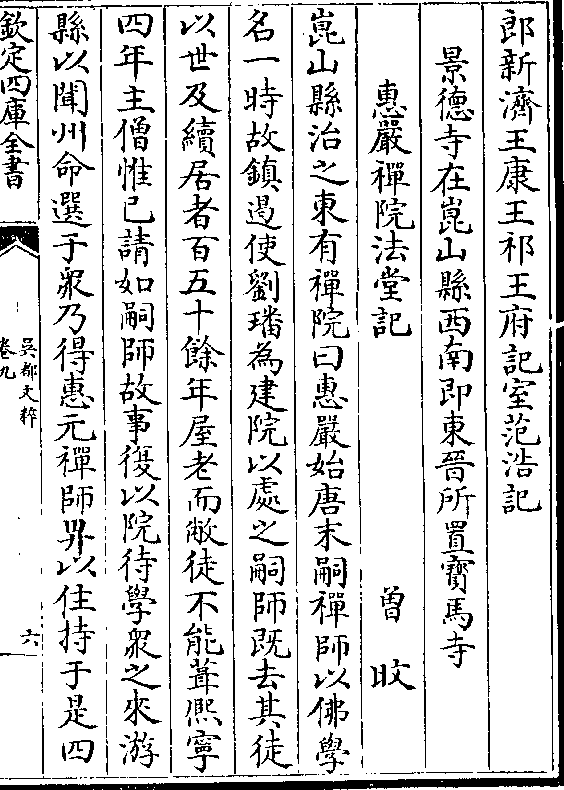 郎新濟王康王祁王府記室范浩記
景德寺在崑山縣西南即東晉所置寳馬寺
惠嚴禪院法堂記 曾旼
崑山縣治之東有禪院曰惠嚴始唐末嗣禪師以佛學
名一時故鎮遏使劉璠為建院以處之嗣師既去其徒
以世及續居者百五十餘年屋老而敝徒不能葺熙寧
四年主僧惟已請如嗣師故事復以院待學衆之來游
縣以聞州命選于衆乃得惠元禪師畀以住持于是四
欽定四庫全書
吳都文粹
卷九
六